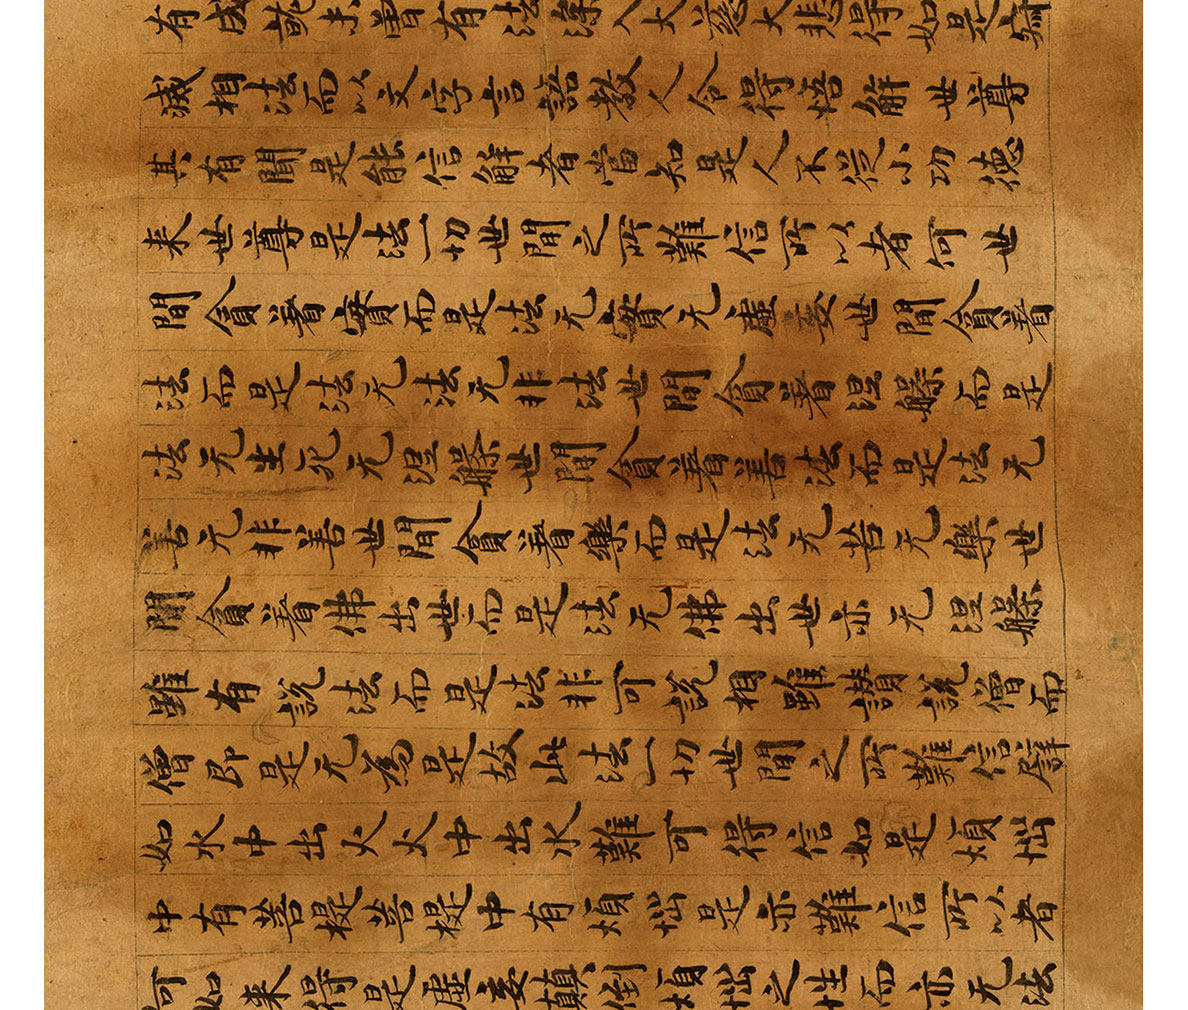 有成就未曾有法深入大慈大悲得如是寂
滅相法而以文字言語教人令得悟解世尊
其有聞是能信解者當知是人不從小功德
来世尊是法一切世間之所難信所以者何世
間貪著實而是法无實无虛妄世間貪著
法而是法无法无非法世間貪著涅槃而是
法无生死无涅槃世間貪著善法而是法无
善无非善世間貪著樂而是法无苦无樂世
間貪著佛出世而是法无佛出世亦无涅槃
雖有說法而是法非可說相雖讚說僧而
僧即是无為是故此法一切世間之所難信譬
如水中出火火中出水難可得信如是煩惱
中有菩提菩提中有煩惱是亦難信所以者
何如来得是虛妄顛倒煩惱之性而亦无法